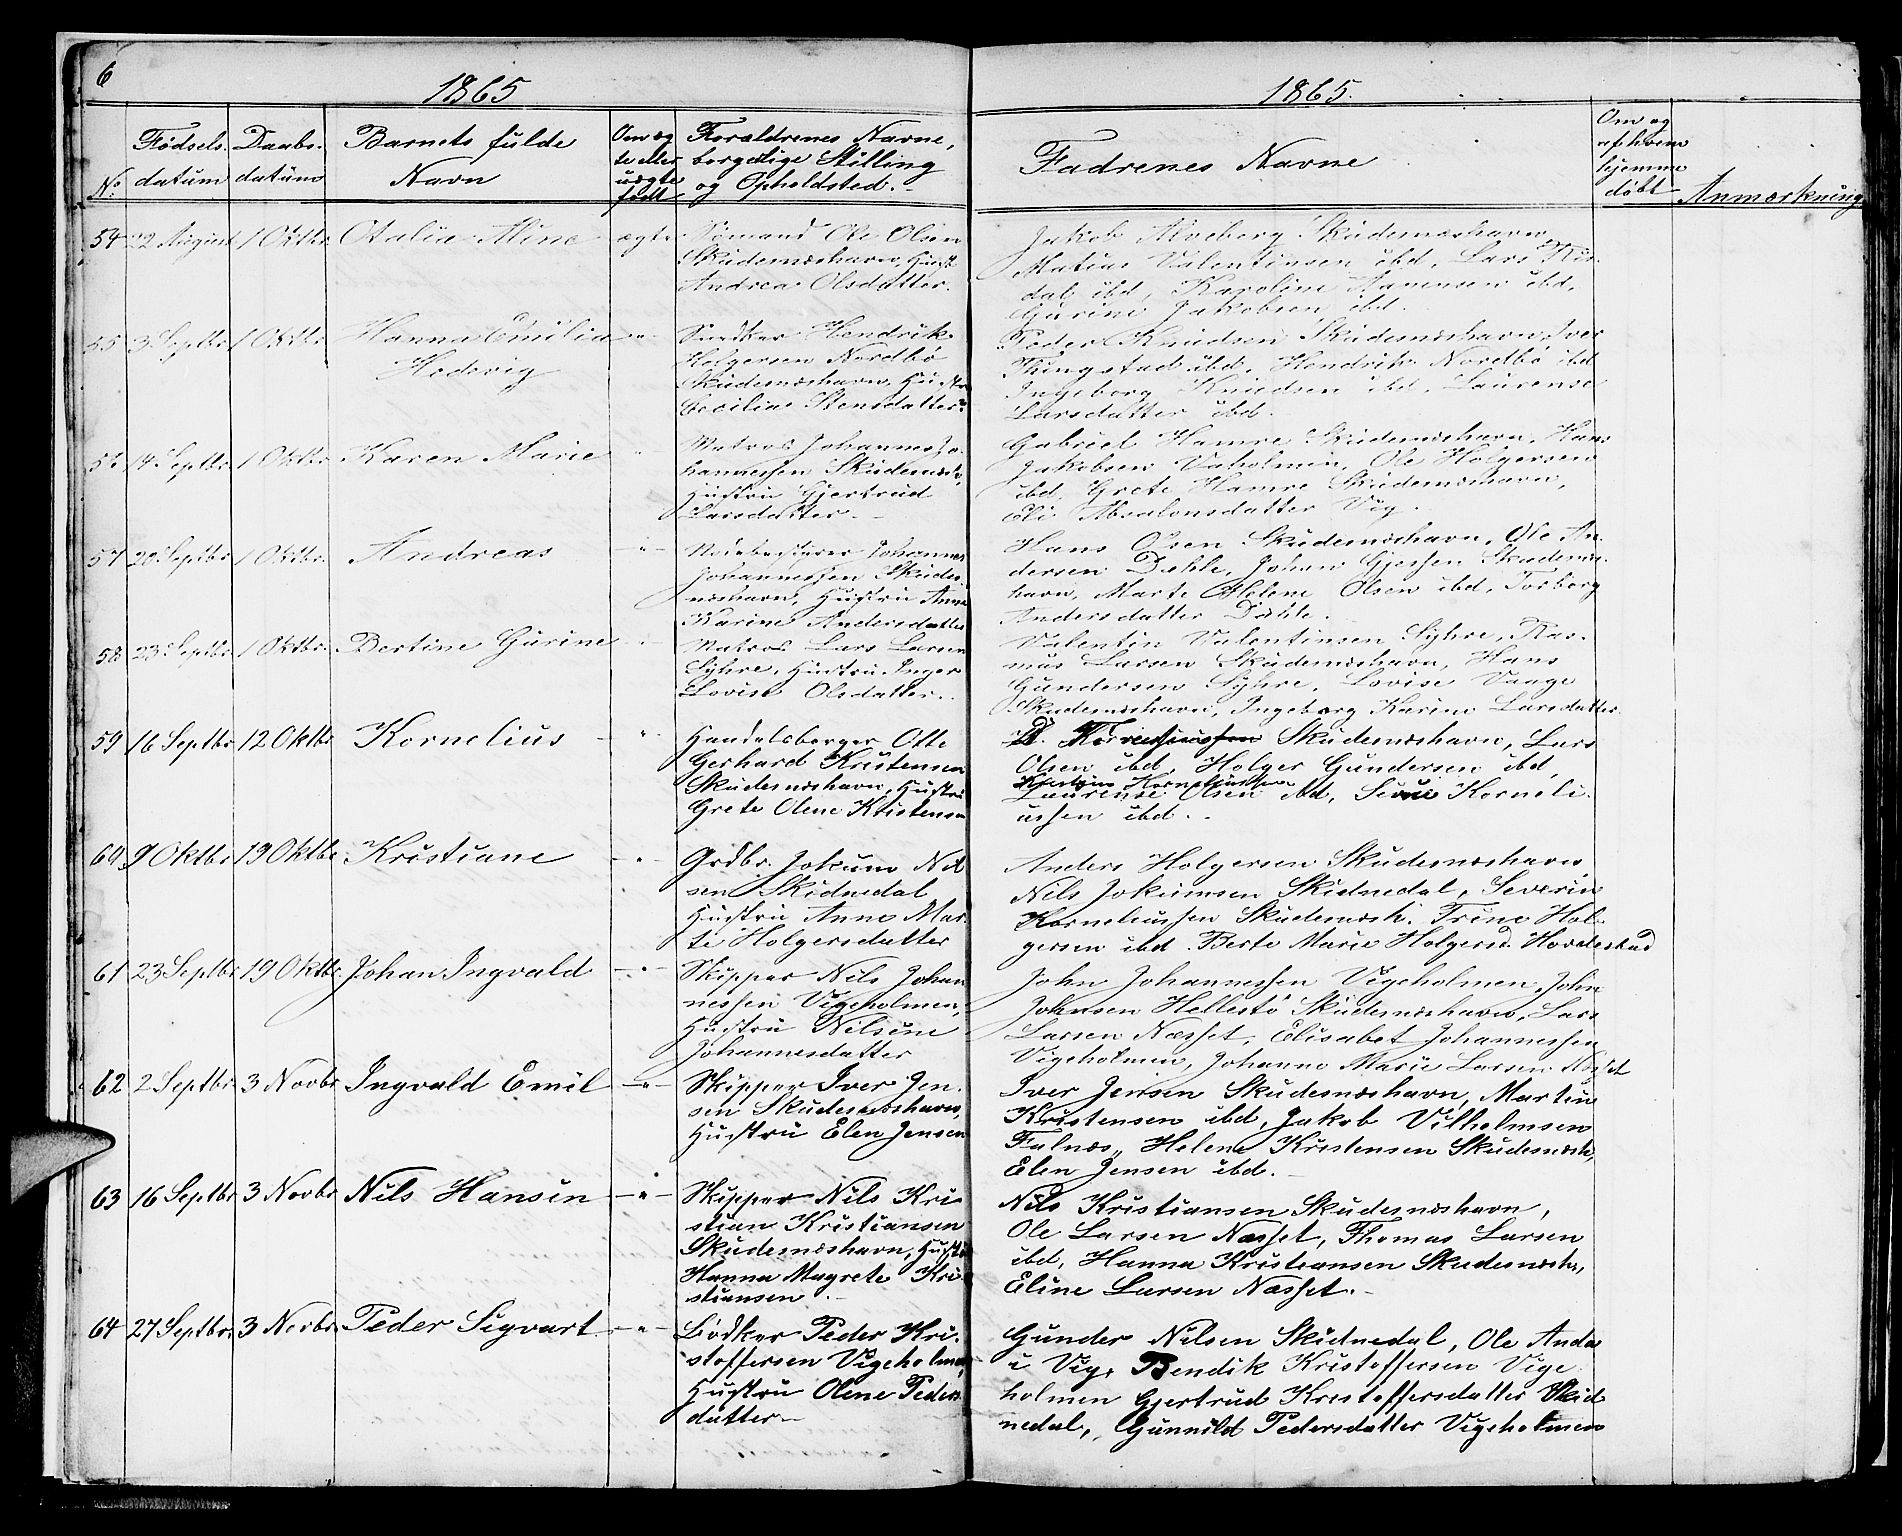 6
1865
1865.
No.
Fødsels-
datum
Daabs-
datum
Barnets fulde
Navn
Om æg
te eller
uægte
født
Forældrenes Navne,
borgerlige Stilling
og Opholdsted.
Fadrenes Navne
Om og
af hvem
hjemme
døbt
Anmærkning
54 22 August 1 Oktbr. Otalia Aline ægte Sømand Ole Olsen
Skudesnæshavn, Hust
Andrea Olsdatter.
Jakob Alveberg Skudesnæshavn
Matias Valentinsen ibd, Lars
dal ibd, Karoline ibd,
Gurine Jakobsen ibd.
55 3 Septbr 1 Oktbr Hanna Emilia
Hedevig
Snedker Hendrik
Holgersen Nordbø
Skudesnæshavn, Hustru
Cecilia Stensdatter.
Peder Knudsen Skudesnæshavn, Iver
Tungstad ibd, Hendrik Nordbø ibd
Ingeborg Knudsen ibd, Laurense
Larsdatter ibd.
56 14 Septbr 1 Oktbr Karen Marie
Matros Johannes Jo-
hannessen Skudesnæsh,
Hustru Gjertrud
Larsdatter.
Gabriel Hamre Skudesnæshavn, Hans
Jakobsen Vaholmen, Ole Holgersen
ibd, Grete Hamre Skudesnæshavn,
Eli Absalonsdatter Vig.
57 20 Septbr 1 Oktbr. Andreas
Johannes
Johannessen Skudes-
næshavn, Hustru Anna
Karine Andersdatter
Hans Olsen Skudesnæshavn, Ole An-
dersen Dahle, Johan Gjessen Skudesnæs-
havn, Marte Helene Olsen ibd, Torborg
Andersdatter Dahle.
58 23 Septbr 1 Oktbr. Bertine Gurine
Matros Lars Larsen
Syhre, Hustru Inger
Lovise Olsdatter.
Valentin Valentinsen Syhre, Ras-
mus Larsen Skudesnæshavn, Hans
Gundersen Syhre, Lovise Vaage
Skudesnæshavn, Ingeborg Karine Larsdatter
59 16 Septbr 12 Oktbr Kornelius
Handelsborger Otto
Gerhard Kristensen
Skudesnæshavn, Hustru
Grete Olene Kristensen
Skudesnæshavn, Lars
Olsen ibd, Holger Gundersen ibd,
Korneliussen
Laurense Olsen ibd, Korneli-
ussen ibd.
60 9 Oktbr 19 Oktbr Kristiane
Grdbr. Jokum Nil
sen Skidnedal
Hustru Anne Mar-
te Holgersdatter
Anders Holgersen Skudesnæshavn
Nils Jokumsen Skidnedal, Severin
Korneliussen Skudesnæsh. Trine Hol-
gersen ibd. Berte Marie Holgersd. Hovdestad
61 23 Septbr 19 Oktbr. Johan Ingvald
Skipper Nils Johan
nessen Vigeholmen,
Hustru Nilsine
Johannesdatter
John Johannessen Vigeholmen, John
Johnsen Hellestø Skudesnæshavn, Lars
Larsen Næsset, Elisabet Johannessen
Vigeholmen, Johanne Marie Larsen Næsset
62 2 Septbr 3 Novbr Ingvald Emil
Skipper Iver Jen-
sen Skudesnæshavn,
Hustru Elen Jensen
Iver Jensen Skudesnæshavn, Martin
Kristensen ibd, Jakob Vilhelmsen
Falnæs, Helene Kristensen Skudesnæsh,
Elen Jensen ibd.
63 16 Septbr 3 Novbr Nils Hansin
Skipper Nils Kri
stian Kristiansen
Skudesnæshavn, Hustru
Hanna Magrete Kri-
stiansen.
Nils Kristiansen Skudesnæshavn,
Ole Larsen Næsset, Thomas Larsen
ibd, Hanna Kristiansen Skudesnæsh,
Eline Larsen Næsset.
64 27 Septbr. 3 Novbr. Peder Sigvart
Bødker Peder Kri-
stoffersen Vigeholmen,
Hustru Olene Peders
datter
Gunder Nilsen Skidnedal, Ole Anda
i Vig, Bendik Kristoffersen Vige
holmen Gjertrud Kristoffersdatter Skid
nedal, Gunnild Pedersdatter Vigeholmen